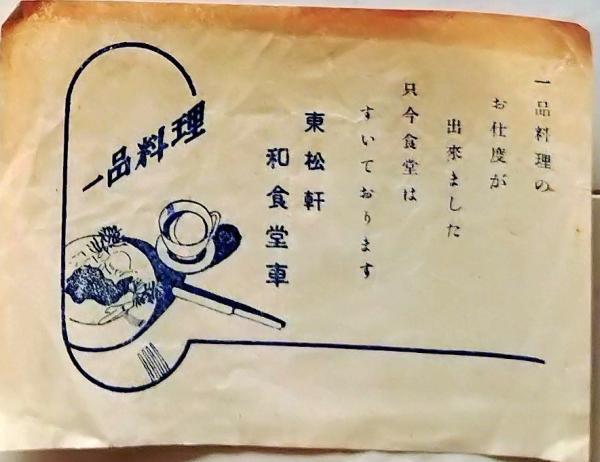 一品料理の
お仕度が
出來ました
只今食堂は
すいております
東松軒
和食堂車
一品料理